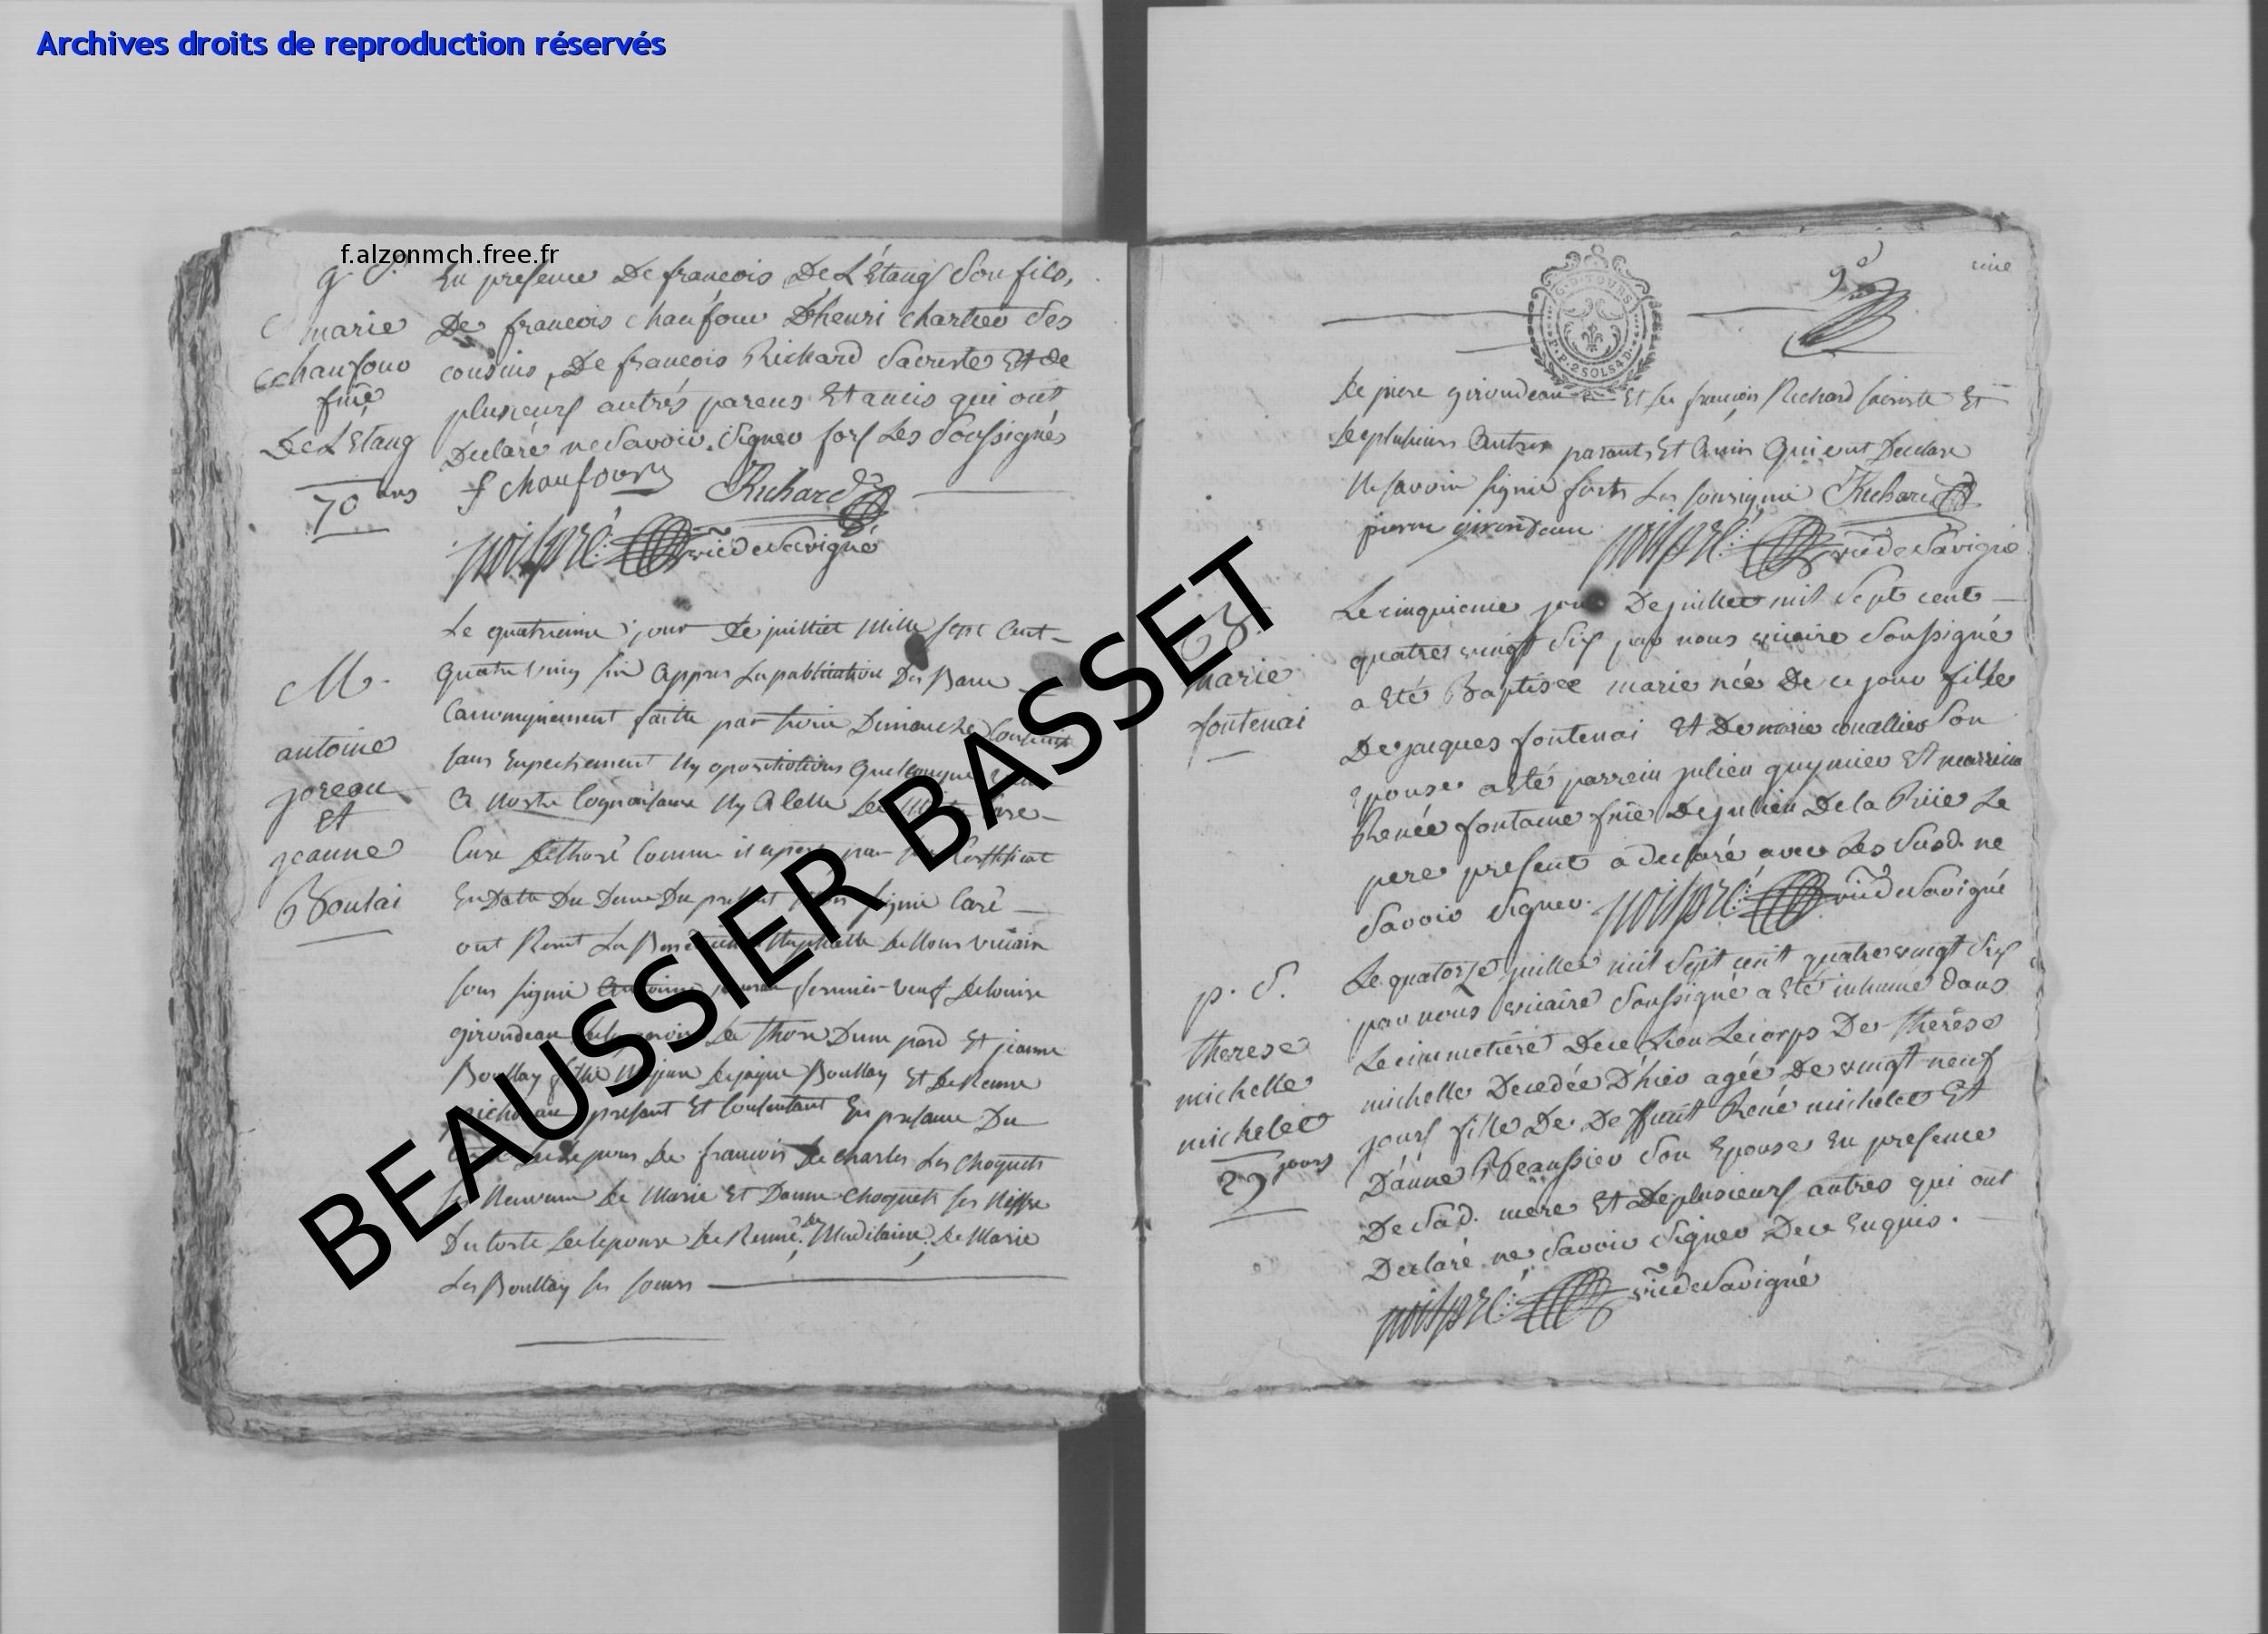 Archives droits de reproduction réservés
f.alzonmch.free.fr
BEAUSSIER BASSET
g S.
marie
chaufour
fme
De L'Etang
70 ans
En presence De francois De L'Etang Son fils,
De francois chaufour D'henri chartier Ses
cousins, De francois Richard Sacriste Et de
plusieurs autrés parens Et amis qui ont
Declaré ne Savoir Signer fors Les Soussignés
f chaufour Richard
noispré vic de Savigné
M.
antoine
joreau
et
jeanne
Boulai
Le quatrieme jour de juilliet Mille sept Cent
quatre Ving six appres La publication Des Bans
Canoniquement faitte par trois Dimanche
sans Empechement Ny oposititions quelconque
a Nostre Cognoissance Ny a Celle
Cure de thoré Comme il apert par son Certificat
En Datte Du Deux Du present Mois signé Caré
ont Recut La Benediction Nuptialle de Nous Vicaire
sous signé antoine joreau fermier veuf de louise
girondeau de la paroisse de Thoré Dune pard Et jeanne
Boullay fille Majeure de jaque Boullay Et de Renee
present Et Consentant En presance Du
de francois de charles Les choquets
ses Neuveux de Marie Et Danne choquets ses Niesse
Du Costé de lepouse de Renne, de Madelaine, de Marie
Les Boullay ses soeurs
G. D. TOURS
2 SOLS 4 D.
de piere girondeau Et de francois Richard sacriste Et
de plusieurs autres parants Et Amis Qui ont Declare
Ne savoir signé forts Les sousigné Richard
pierre girondeau noispré vic de Savigné
B.
marie
fontenai
Le cinquieme jour De juillet mil Sept cent
quatre vingt Six par nous vicaire Soussigné
a Eté Baptisée marie née De ce jour fille
De jacques fontenai Et De marie Son
Epouse a Eté parrein julien guymier Et marreine
Renée fontaine fme De julien De la Brüe Le
pere present a declaré avec Les Susd. ne
Savoir Signer. noispré vic de Savigné
p. S.
therese
michelle
michelet
29 jours
Le quatorze juillet mil Sept cent quatre vingt Six
par nous vicaire Soussigné a Eté inhumé dans
Le cimmetiere De ce Lieu Le corps De Therese
michelle Decedée D'hier agée De vingt neuf
jours fille De Deffunt René michelet Et
D'anne Beaussier Son Epouse En presence
De Sad. mere Et De plusieurs autres qui ont
Declaré ne Savoir Signer De ce Enquis.
noispré vic de Savigné